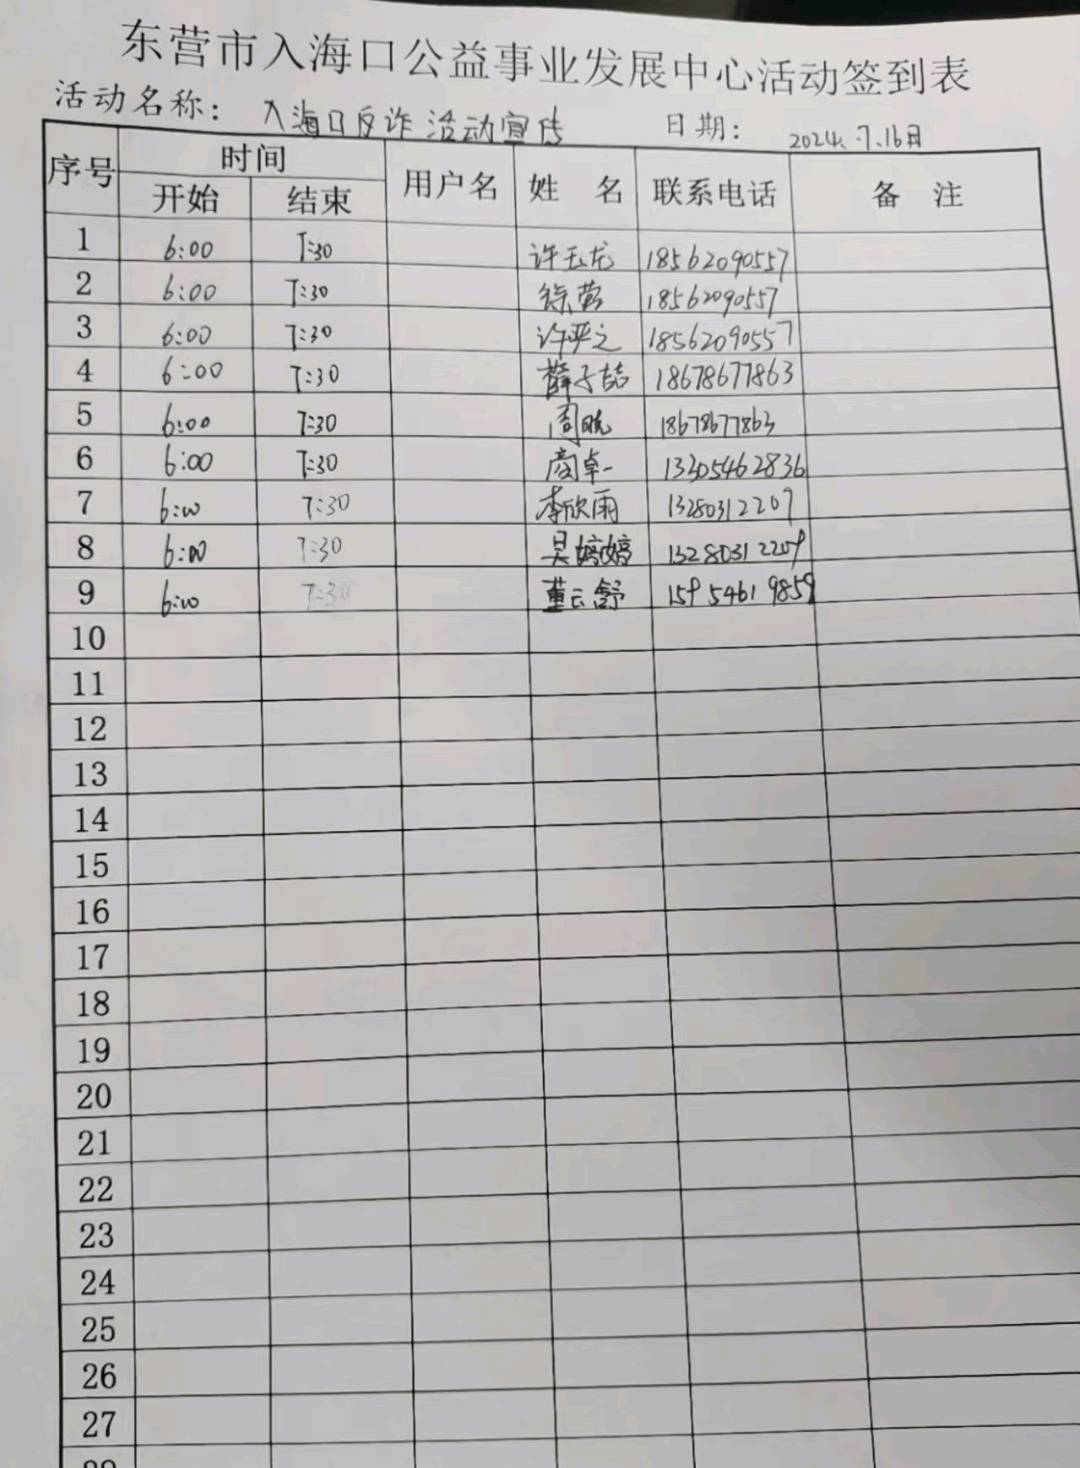 东营市入海口公益事业发展中心活动签到表
活动名称： 入海口反诈活动宣传 日期： 2024.7.16日
序号 时间 用户名 姓 名 联系电话 备 注
开始 结束
1 6:00 7:30 许玉龙 18562090557
2 6:00 7:30 徐营 18562090557
3 6:00 7:30 许严之 18562090557
4 6:00 7:30 薛子喆 18678677863
5 6:00 7:30 周晓 18678677863
6 6:00 7:30 商卓一 13305462836
7 6:00 7:30 李欣雨 13280312209
8 6:00 7:30 吴婷婷 13280312209
9 6:00 7:30 董云舒 15954619859
10
11
12
13
14
15
16
17
18
19
20
21
22
23
24
25
26
27